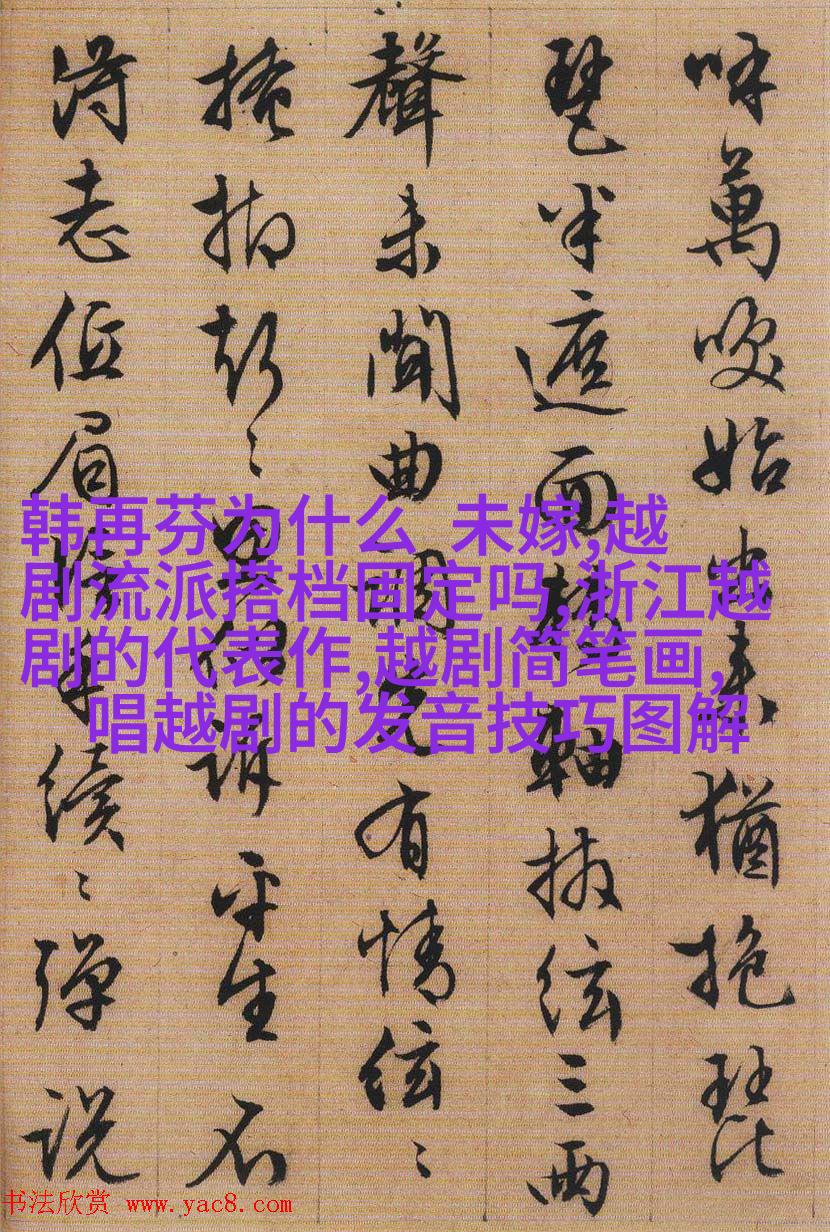 呼萬喚始出来猶抱琵
琶半遮面轉軸撥絃三兩
聲未聞曲調先有情絃〻
掩抑声〻思似訴平生不
得志低眉信手續〻弹説
韩再芬为什么 未嫁,越
剧流派搭档固定吗,浙江越
剧的代表作,越剧简笔画,
唱越剧的发音技巧图解
书法欣赏 www.yac8.com